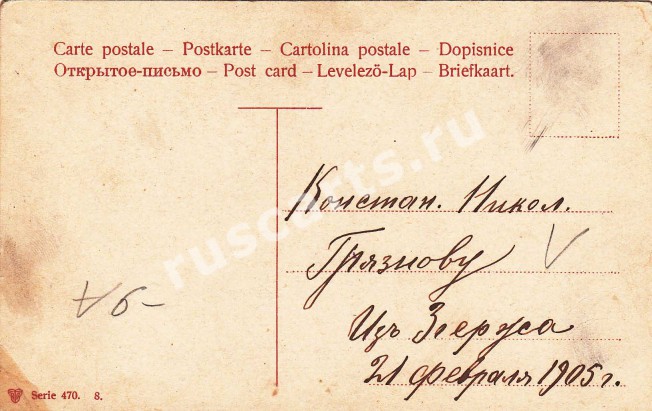 Carte postale – Postkarte – Cartolina postale – Dopisnice
Открытое-письмо – Post card – Levelező-Lap – Briefkaart.
Констан. Никол.
Грязнову
Изъ
21 февраля 1905 г.
Serie 470. 8.
ruscarts.ru